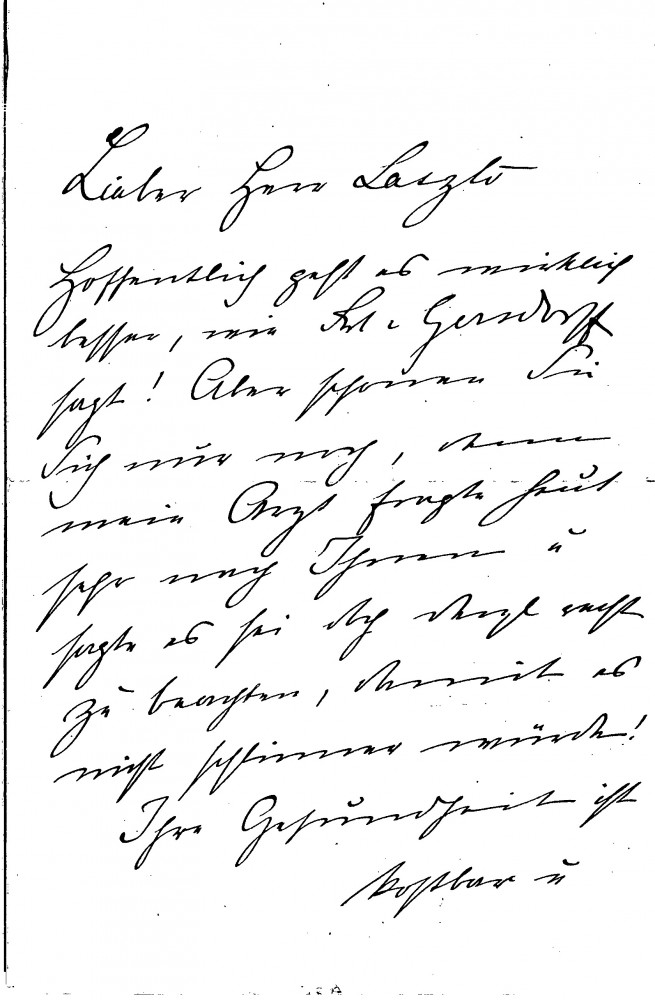 Lieber Herr Laszló
Hoffentlich geht es wirklich
besser, wie Frl. v. Gersdorff
sagt! Aber schonen Sie
Sich nur noch, denn
mein Arzt fragte heut
sehr nach Ihnen u
sagte es sei doch dergl recht
zu beachten, damit es
nicht schlimmer würde!
Ihre Gesundheit ist
kostbar u